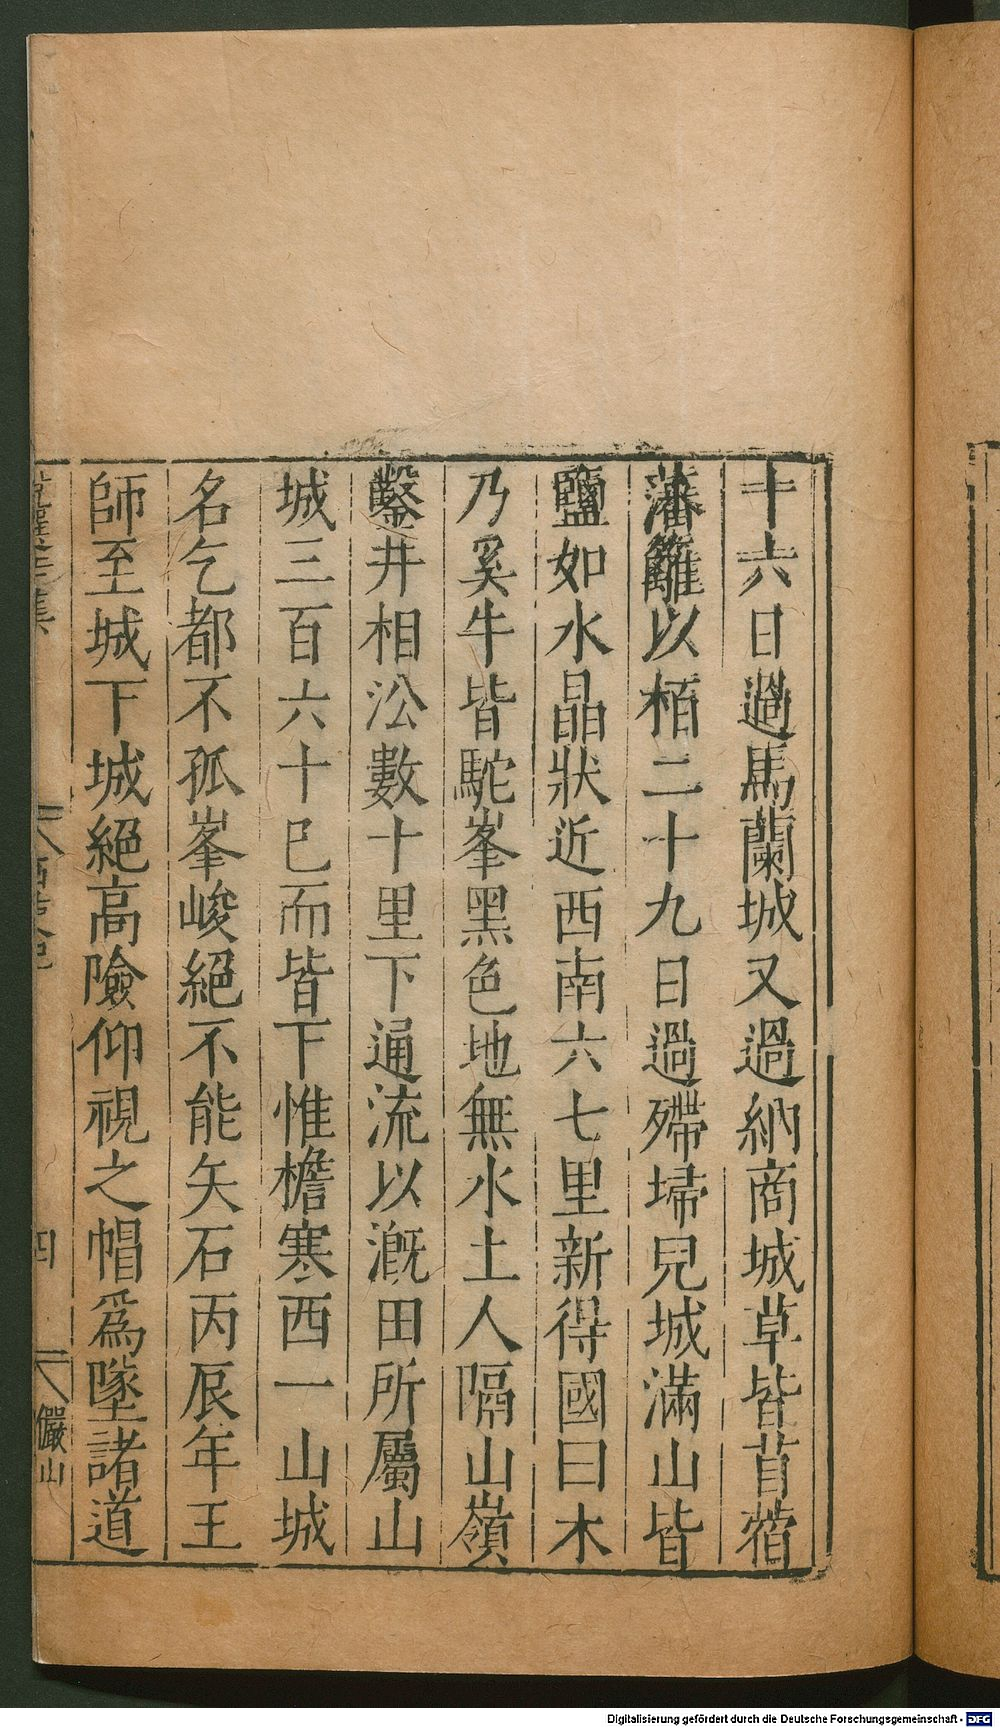 十六日過馬蘭城又過納商城草皆苜蓿
藩籬以栢二十九日過殢埽兒城滿山皆
鹽如水晶狀近西南六七里新得國曰木
乃奚牛皆駝峯黑色地無水土人隔山嶺
鑿井相沿數十里下通流以漑田所屬山
城三百六十巳而皆下惟檐寒西一山城
名乞都不孤峯峻絕不能矢石丙辰年王
師至城下城絕高險仰視之帽爲墜諸道
四
儼山
Digitalisierung gefördert durch die Deutsche Forschungsgemeinschaft - DFG